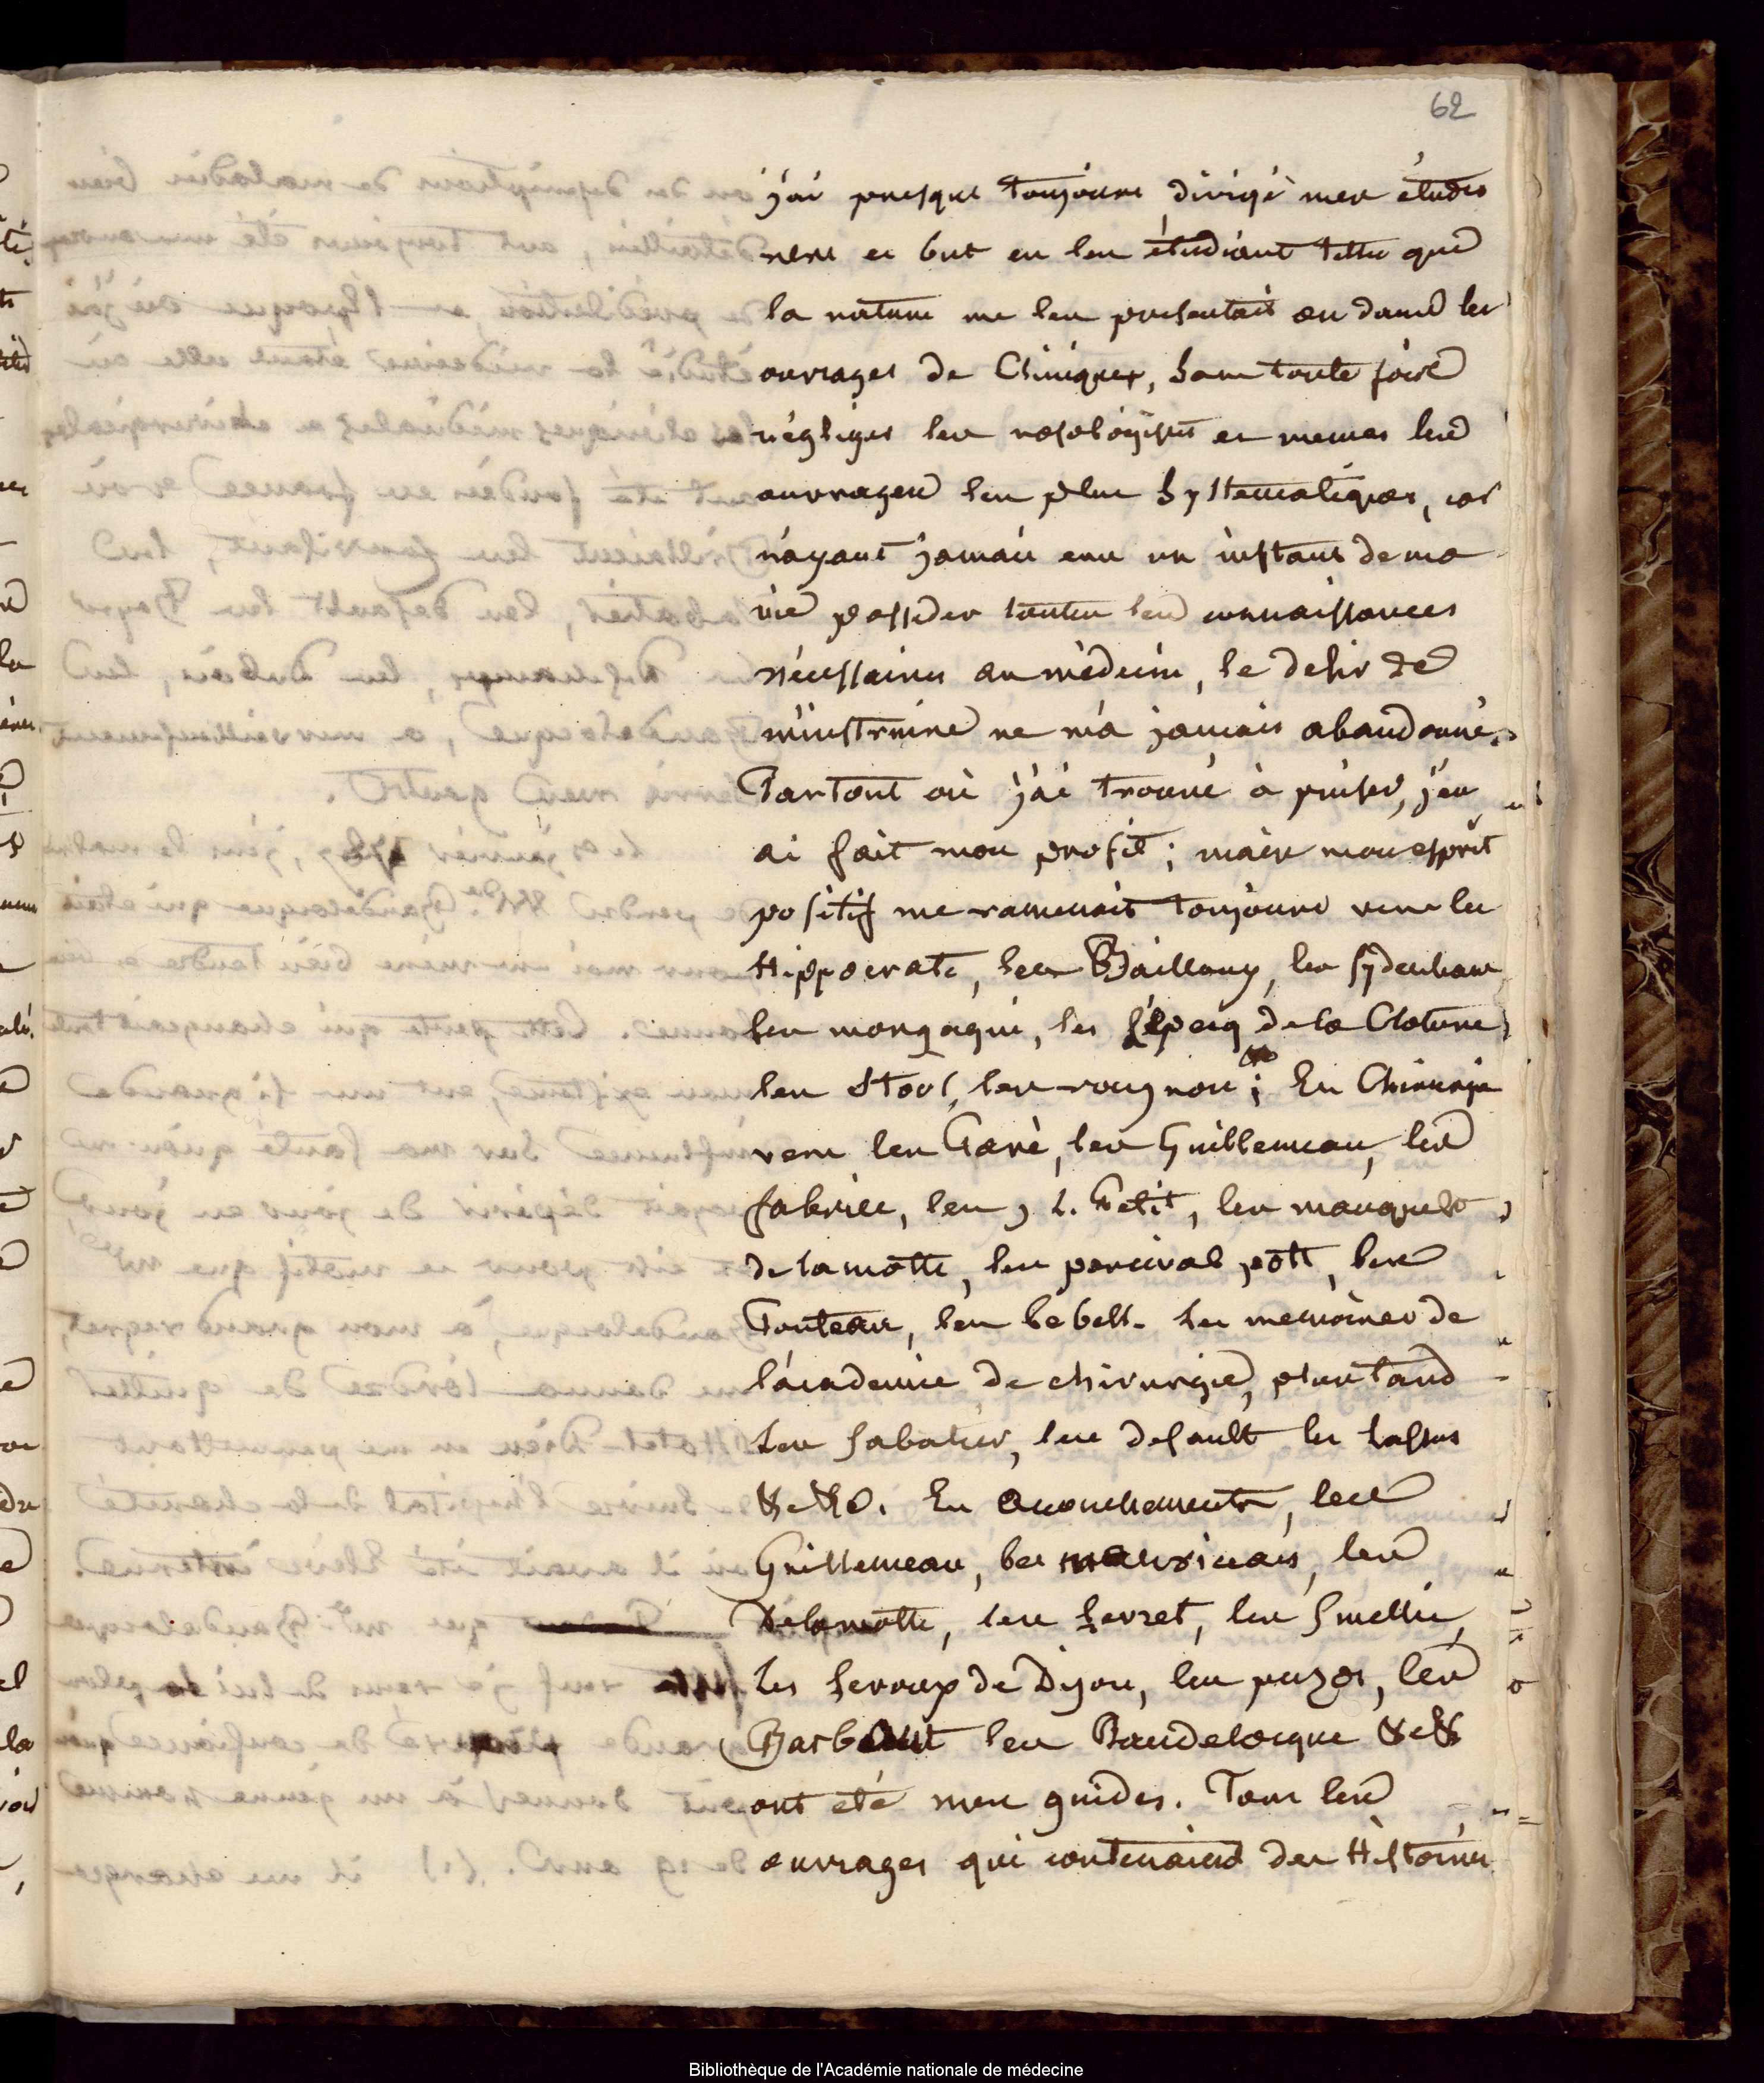 62
j'ai presque toujours dirigé mes études
vers ce but en les étudiant telles que
la nature me les presentait ou dans les
ouvrages de Cliniques, sans toute fois
négliger les nosologistes et memes les
ouvrages les plus systematiques, car
n'ayant jamais cru un instant de ma
vie posseder toutes les connaissances
nécessaires au médecin, le desir de
m'instruire ne m'a jamais abandonné.
Partout où j'ai trouvé à puiser, j'en
ai fait mon profit; mais mon esprit
positif me ramenait toujours vers les
Hippocrate, les Baillouy, les sydenham
les morgagni, les Lépecq de la Cloture
les Stool, les rougnon; En Chirurgie
vers les Paré, les Guillemeau, les
fabrice, les J. L. Petit, les mauquest
de lamotte, les percival pott, les
Pouteau, les bebell. les memoires de
l'academie de chirurgie, plus tard
les sabatier, les desault les lassus
&c &c. En Accouchements, les
Guillemeau, les mauriceau, les
Delamotte, les Levret, les Smellie,
les Leroux de Dijon, les puzos, les
Barbaut les Baudelocque &c &
ont été mes guides. Tous les
ouvrages qui contenaient des Histoires
Bibliothèque de l'Académie nationale de médecine